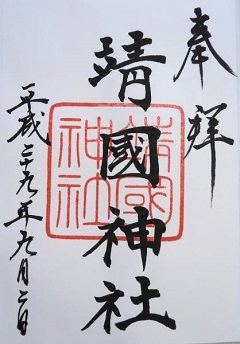 奉拝
靖國神社
靖國神社
平成二十九年九月二日